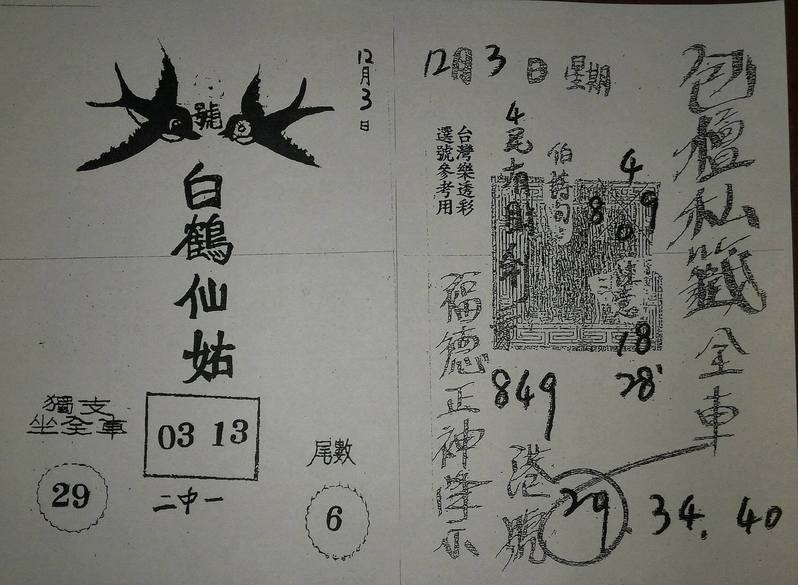 12月3日
號
白鶴仙姑
獨支
坐全車
29
03 13
二中一
尾數
6
12月3日 星期
包壇仙籤全車
台灣樂透彩
選號參考用
4尾有
伯詩句
4
8 9
0
注意
18
28
849
福德正神降示
港號
29. 34. 40